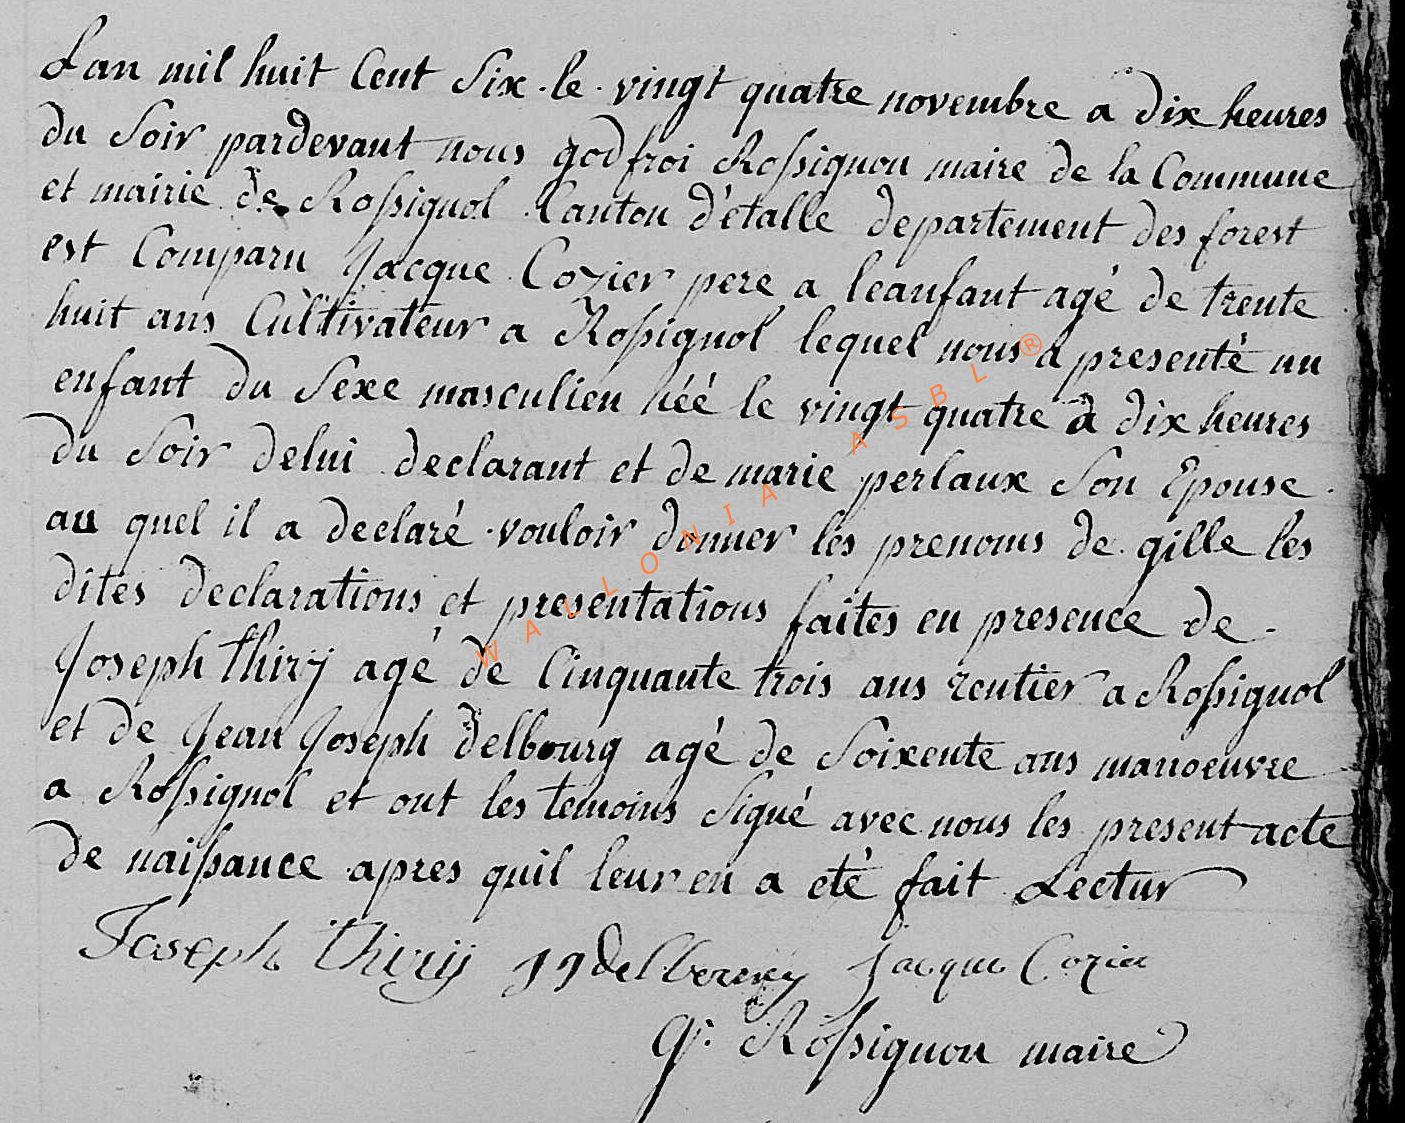 Lan mil huit Cent Six . le . vingt quatre novembre a dix heures
du Soir pardevant nous godfroi Rossignon maire de la Commune
et mairie de Rossignol Canton d'étalle departement des forest
est Comparu Jacque Cozier pere a leanfant agé de trente
huit ans Cultivateur a Rossignol lequel nous a presenté un
enfant du Sexe masculien néé le vingt quatre a dix heures
du Soir delui declarant et de marie perlaux Son Epouse .
au quel il a declaré vouloir donner les prenoms de gille les
dites declarations et presentations faites en presence de
Joseph thirÿ agé de Cinquante trois ans rentier a Rossignol
et de Jean Joseph delbourg agé de Soixente ans manoeuvre
a Rossignol et ont les temoins Signé avec nous les present acte
de naissance apres quil leur en a eté fait Lectur
Joseph thirÿ JJ Jacque Cozier
G. Rossignon maire
WALLONIA ASBL ®